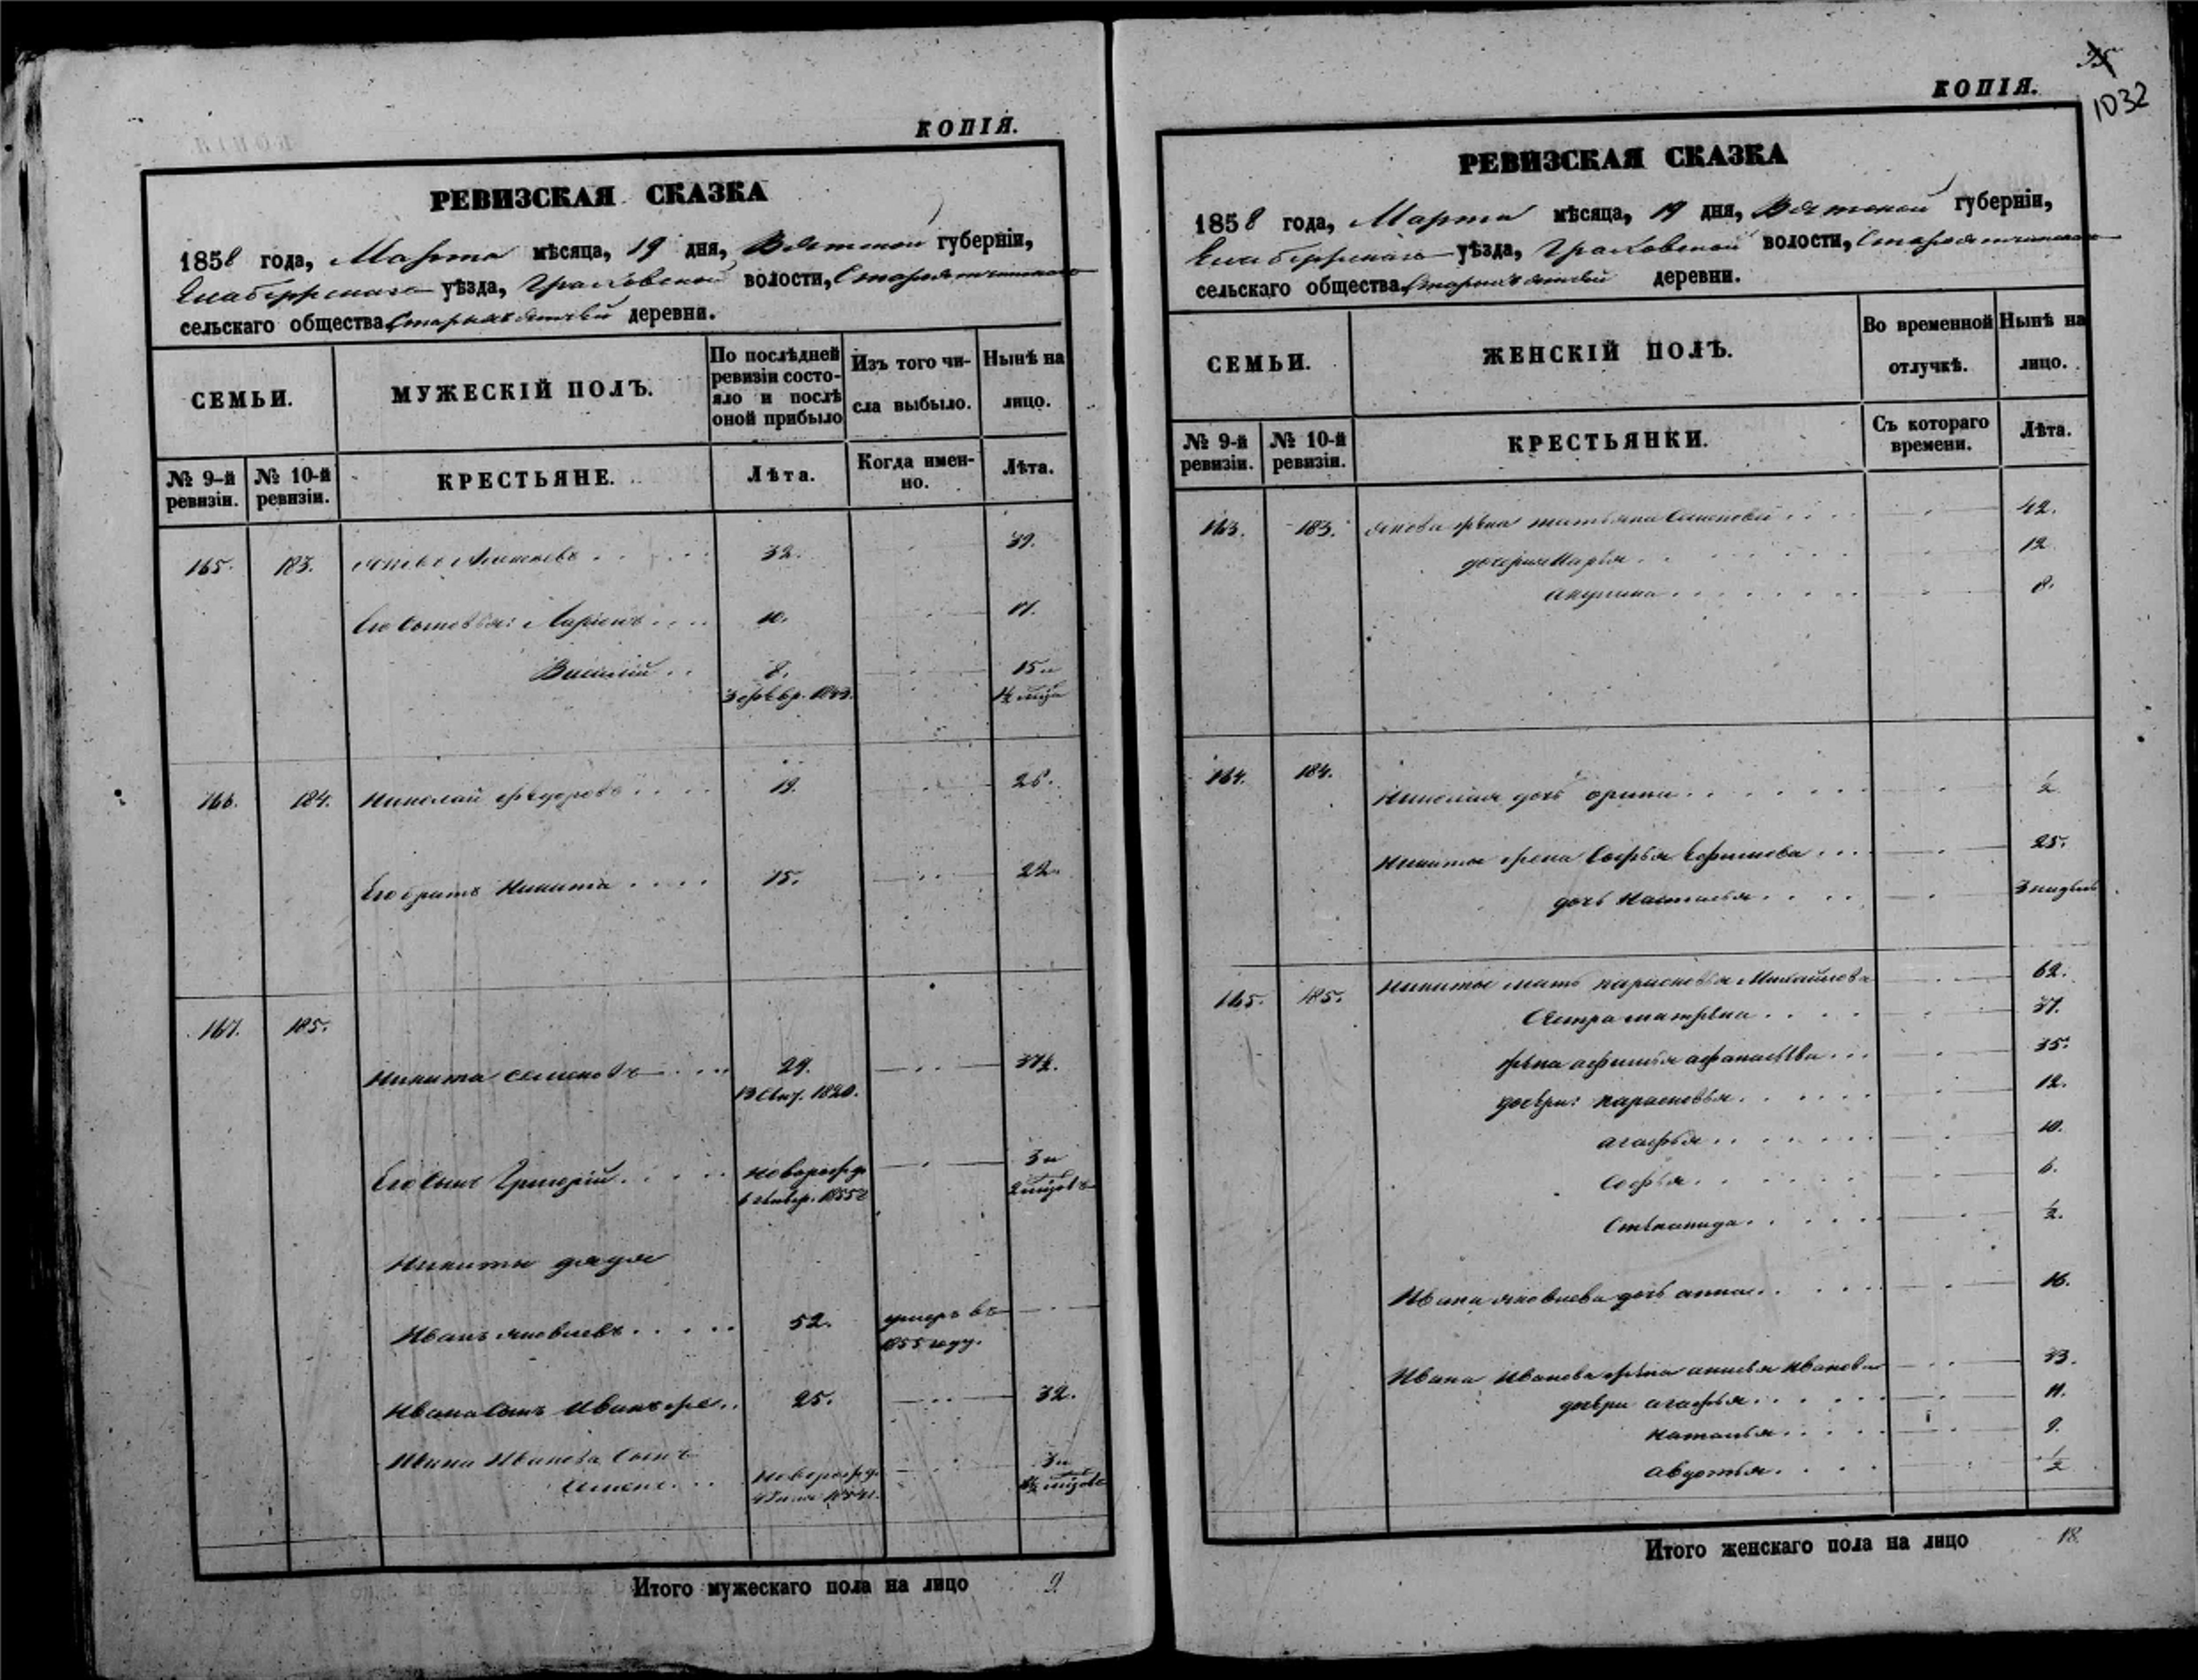 КОПІЯ.
РЕВИЗСКАЯ СКАЗКА
1858 года, Марта мѣсяца, 19 дня, Вятской губерніи,
Елабужскаго уѣзда, Граховской волости,
сельскаго общества деревни.
СЕМЬИ.
МУЖЕСКІЙ ПОЛЪ.
По послѣдней ревизіи состояло и послѣ оной прибыло
Изъ того числа выбыло.
Нынѣ на лицо.
№ 9-й ревизіи.
№ 10-й ревизіи.
КРЕСТЬЯНЕ.
Лѣта.
Когда именно.
Лѣта.
165. 183. 32. 39.
Его сыновья: Ларіонъ .... 10. 17.
Василій .. 8. 15 и
166. 184. Николай Федоровъ .... 19. 26.
Его братъ Никита .... 15. 22.
167. 185.
Никита Семеновъ .... 29.
Его сынъ Григорій .... новорожд. 3 и
Никиты дядя
Иванъ Яковлевъ ..... 52. умеръ въ
1855 году.
Ивана сынъ Иванъ же .. 25. 32.
Ивана Иванова сынъ
новорожд. 3 и
Итого мужескаго пола на лицо 9.
1032
КОПІЯ.
РЕВИЗСКАЯ СКАЗКА
1858 года, Марта мѣсяца, 19 дня, Вятской губерніи,
Елабужскаго уѣзда, Граховской волости,
сельскаго общества деревни.
СЕМЬИ.
ЖЕНСКІЙ ПОЛЪ.
Во временной отлучкѣ.
Нынѣ на лицо.
№ 9-й ревизіи.
№ 10-й ревизіи.
КРЕСТЬЯНКИ.
Съ котораго времени.
Лѣта.
163. 183. жена Татьяна Семенова .... 42.
Марья 12
Акулина 8.
164. 184. Николая дочь Орина ½
Никиты жена Софья Ефимова ... 25.
дочь Настасья 3 недѣль
165. 185. Никиты мать Парасковья Михайлова 62.
сестра Матрена 37.
жена Афимья Афанасьева ... 35.
дочери: Парасковья 12.
Агафья 10.
Софья 6.
Степанида ½.
Ивана Яковлева дочь Анна 16.
Ивана Иванова жена Анисья Иванова 33.
дочери Агафья 11.
Наталья 9.
Авдотья ½
Итого женскаго пола на лицо 18